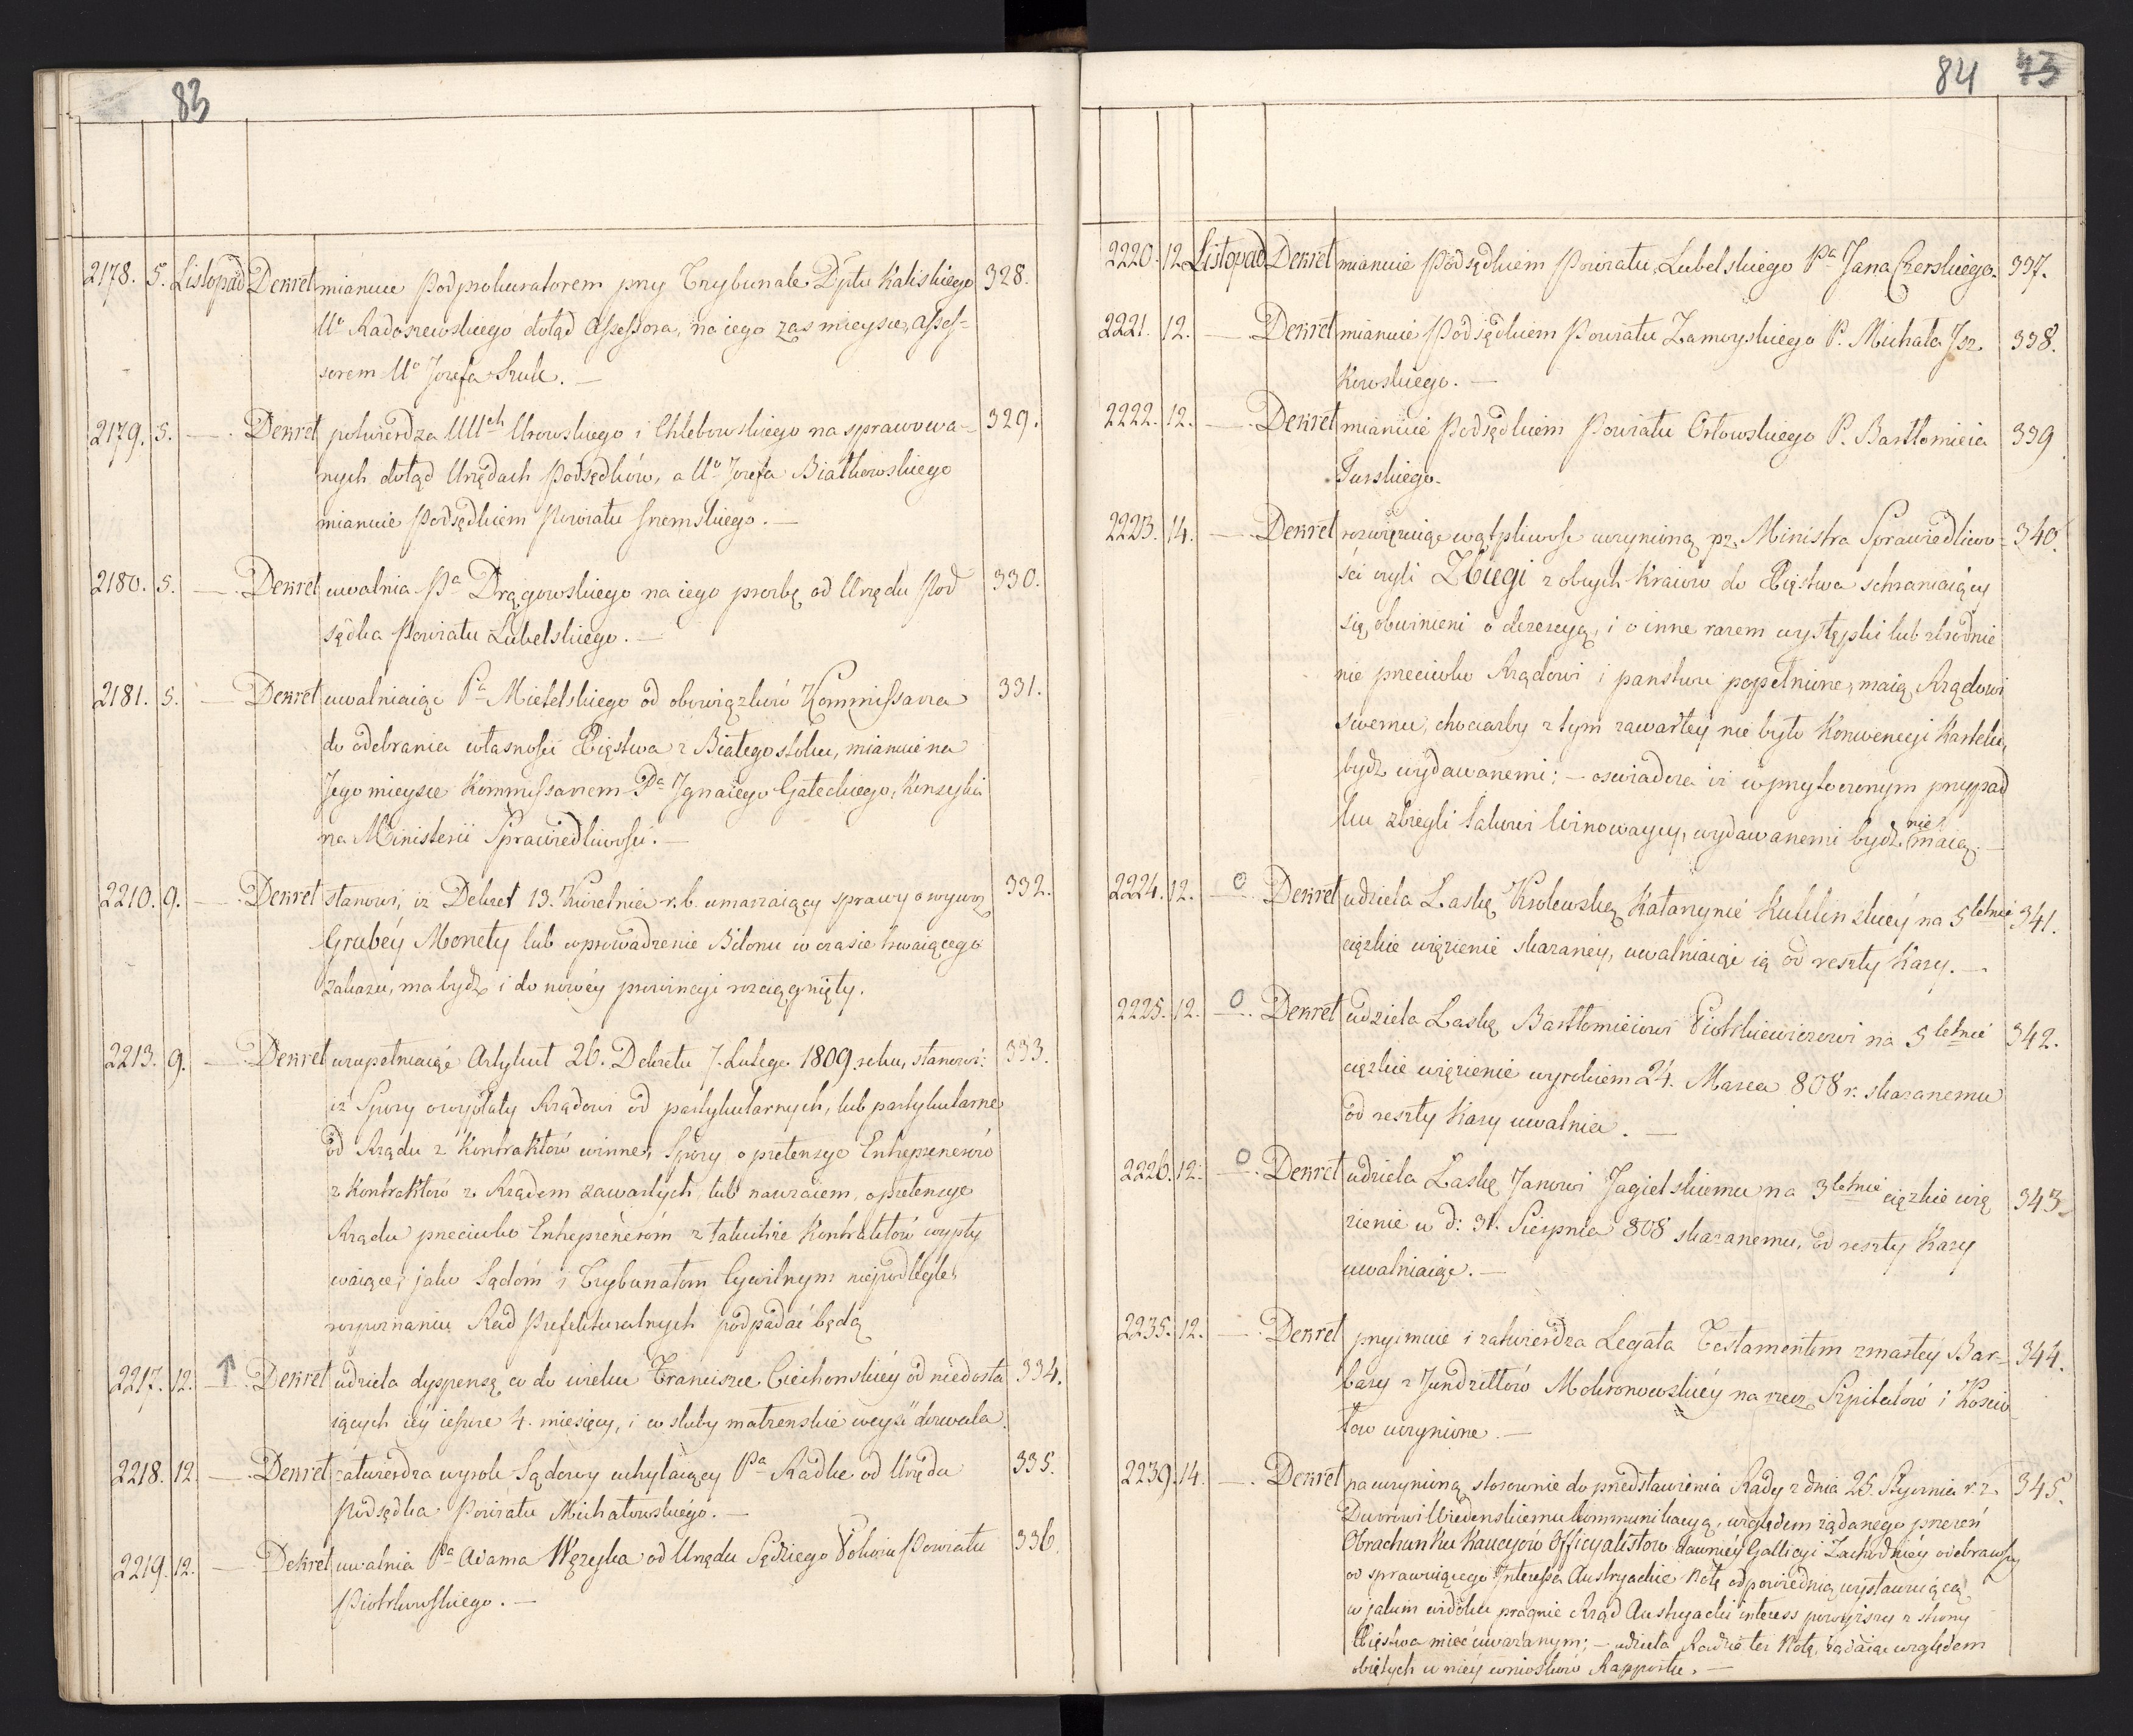 83
2178. 5. Listopad Dekret mianuie Podprokuratorem przy Trybunale Dptu Kaliskiego 328.
Uo Radoszewskiego dotąd Assessora, na iego zas mieysce, Asses=
sorem Uo Jozefa Szulc. —
2179. 5. — Dekret potwierdza UUch Urowskiego i Chlebowskiego na sprawowa= 329.
nych dotąd Urzędach Podsędków, a Uo Jozefa Białkowskiego
mianuie Podsędkiem Powiatu Sremskiego. —
2180. 5. — Dekret uwalnia Pa Drągowskiego na iego prozbę od Urzędu Pod 330.
sędka Powiatu Lubelskiego. —
2181. 5. — Dekret uwalniaiąc Pa Mielelskiego od obowiązków Kommissarza 331.
do odebrania własności Xięstwa z Białegostoku, mianuie na
Jego mieysce Kommissarzem Pa Jgnacego Gałeckiego, Konsylia
rza Ministerii Sprawiedliwości. —
2210. 9. — Dekret stanowi, iz Dekret 13. Kwietnia r.b. umarzaiący sprawy o wywoz 332.
Grubéy Monety lub wprowadzenie Bilonu w czasie trwaiącego
zakazu, ma bydz i do nowéy prowincyi rozciągnięty.
2213. 9. — Dekret uzupełniaiąc Artykuł 26. Dekretu 7. Lutego 1809 roku, stanowi: 333.
iż Spory o wypłaty Rządowi od partykularnych, lub partykularne
od Rządu z Kontraktów winne, Spory o pretensye Entreprenerów
z Kontraktów z Rządem zawartych, lub nawzaiem, o pretensye
Rządu przeciwko Entreprenerom z takichże Kontraktów wypły
waiące, jako Sądom i Trybunałom Cywilnym niepodległe,
rozpoznaniu Rad Prefekturalnych podpadać będą
2217. 12. — Dekret udziela dyspensę co do wieku Franciszce Ciechonskiéy od niedosta 334.
iących iéy ieszcze 4. miesięcy, i w sluby małzenskie weyść dozwala.
2218. 12. — Dekret zatwierdza wyrok Sądowy uchylaiący Pa Radke od Urzędu 335.
Podsędka Powiatu Michałowskiego. —
2219. 12. — Dekret uwalnia Pa Adama Wężyka od Urzędu Sędziego Pokoiu Powiatu 336.
Piotrkowskiego. —
84 73
2220. 12. Listopad Dekret mianuie Podsędkiem Powiatu Lubelskiego Pa Jana Czerskiego. 337.
2221. 12. — Dekret mianuie Podsędkiem Powiatu Zamoyskiego P. Michała Jsz 338.
kowskiego. —
2222. 12. — Dekret mianuie Podsędkiem Powiatu Orłowskiego P. Bartłomieia 339
Turskiego.
2223. 14. — Dekret rozwięzuiąc wątpliwość uczynioną pz. Ministra Sprawiedliwo= 340.
ści czyli Zbiegi z obcych Kraiow do Xięstwa schraniaiący
się, obwinieni o dezercyą, i o inne razem występki lub zbrodnie
nie przeciwko Rządowi i panstwu popełnione, maią Rządowi
swemu, chociażby z tym zawartey nie było Konwencyi Kartelu,
bydz wydawanemi: — oswiadcza iz w przytoczonym przypad
ku zbiegli takowi winowaycy, wydawanemi bydz nie maią. —
2224. 12. — o Dekret udziela Laskę Krolewską Katarzynie Kuklinskiéy na 5 letnié 341.
cięzkie więzienie skazaney, uwalniaiąc ią od reszty Kary. —
2225. 12. — o Dekret udziela Laskę Bartłomieiowi Piotrkiewiczowi na 5 letnié 342.
cięzkie więzienie wyrokiem 24. Marca 808 r. skazanemu
od reszty Kary uwalnia. —
2226. 12. — o Dekret udziela Laskę Janowi Jagielskiemu na 3 letnié cięzkie wię 343.
zienie w d: 31. Sierpnia 808 skazanemu, od reszty Kary
uwalniaiąc. —
2235. 12. — Dekret przyimuie i zatwierdza Legata Testamentem zmarłéy Bar= 344.
bary z Jundziłłów Mokronowskiéy na rzecz Szpitalów i Koscio
łow uczynione. —
2239. 14. — Dekret na uczynioną stosownie do przedstawienia Rady z dnia 25. Stycznia r. z. 345.
Dworowi Wiedenskiemu kommunikacyą, względem żądanego przezeń
Obrachunku Kaucyów Officyalistow dawniey Gallicyi Zachodniéy odebrawszy
od sprawuiącego Interessa Austryackie Notę odpowiednią wystawuiącą
w jakim widoku pragnie Rząd Austryacki interess powyższy z strony
Xięstwa mieć uwazanym; — udziela Radzie téi Notę, żądaiąc względem
obiętych w niéy wniosków Rapportu. —